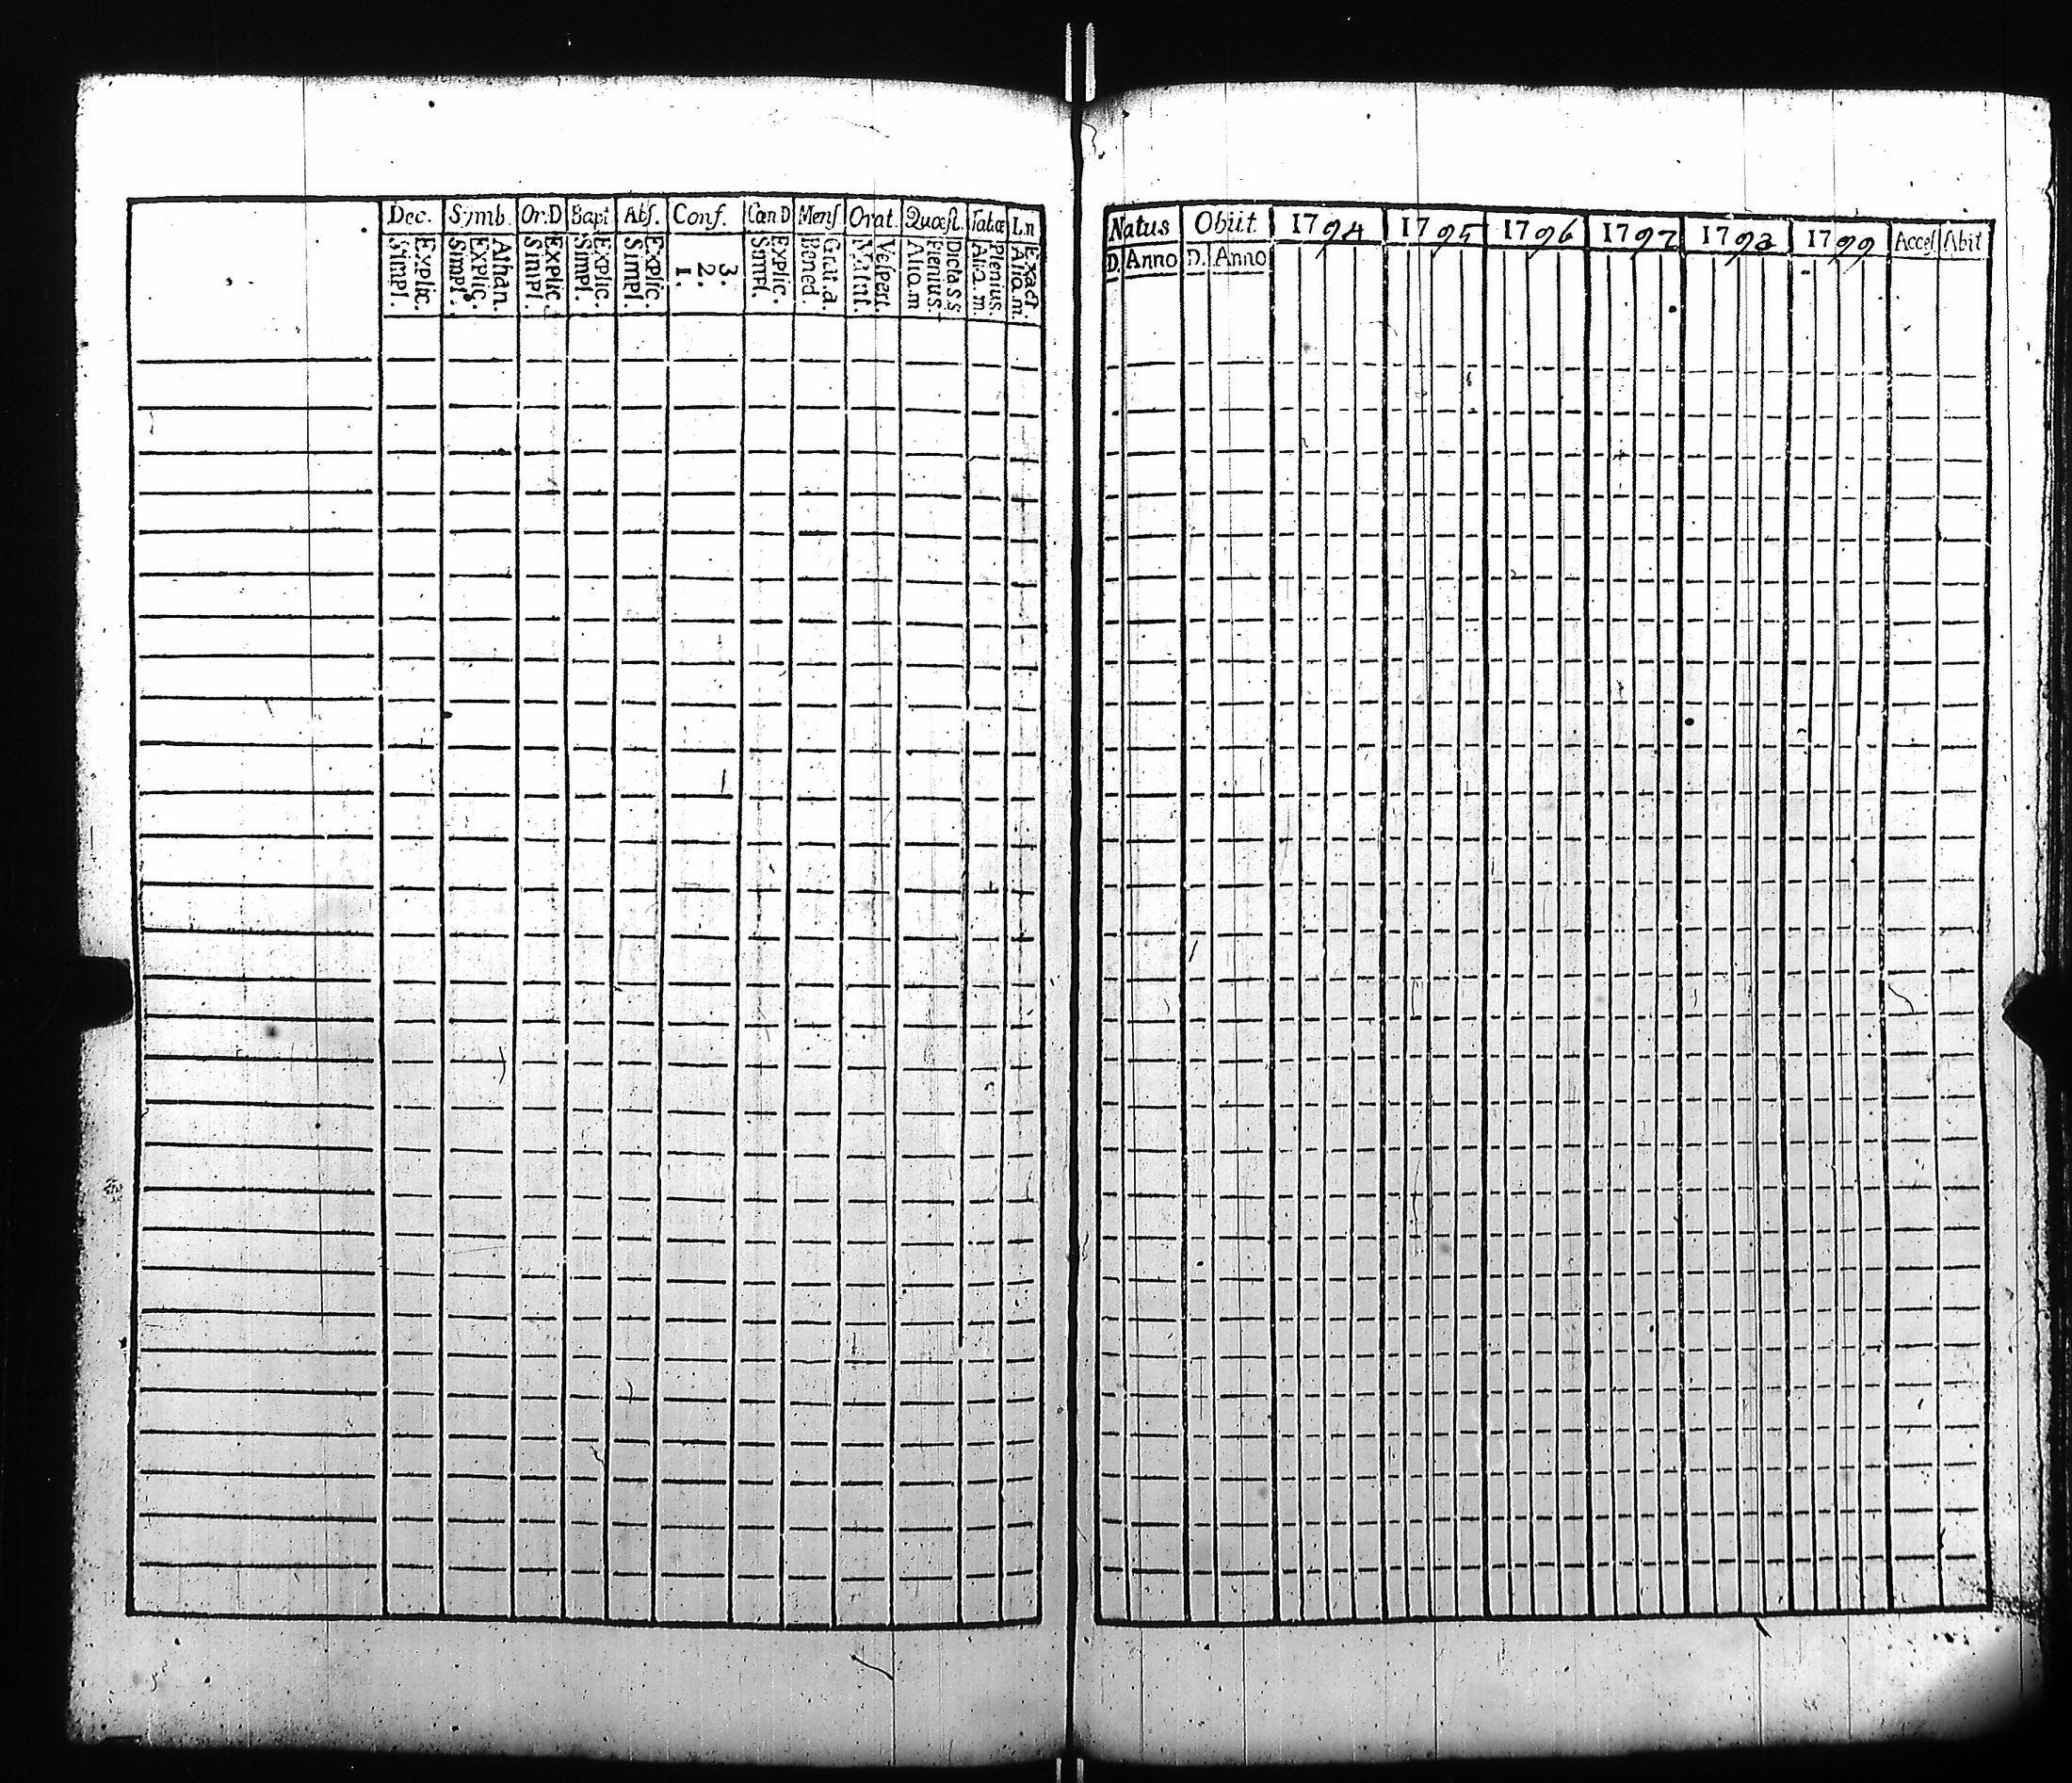 Dec. Symb. Or.D Bapt. Abſ. Conf. Cœn D Menſ Orat. Quæſt. Tabæ L.n
Explic. Simpl.
Athan. Explic. Simpl.
Explic. Simpl.
Explic. Simpl.
Explic. Simpl.
3. 2. 1.
Explic. Simpl.
Grat.a. Bened.
Veſpert. Matut.
Dicta s.s. Plenius. Alio.m
Plenius. Alia.m.
Exact. Alio.m.
Natus Obiit 1794 1795 1796 1797 1798 1799 Acceſ. Abit
D. Anno D. Anno